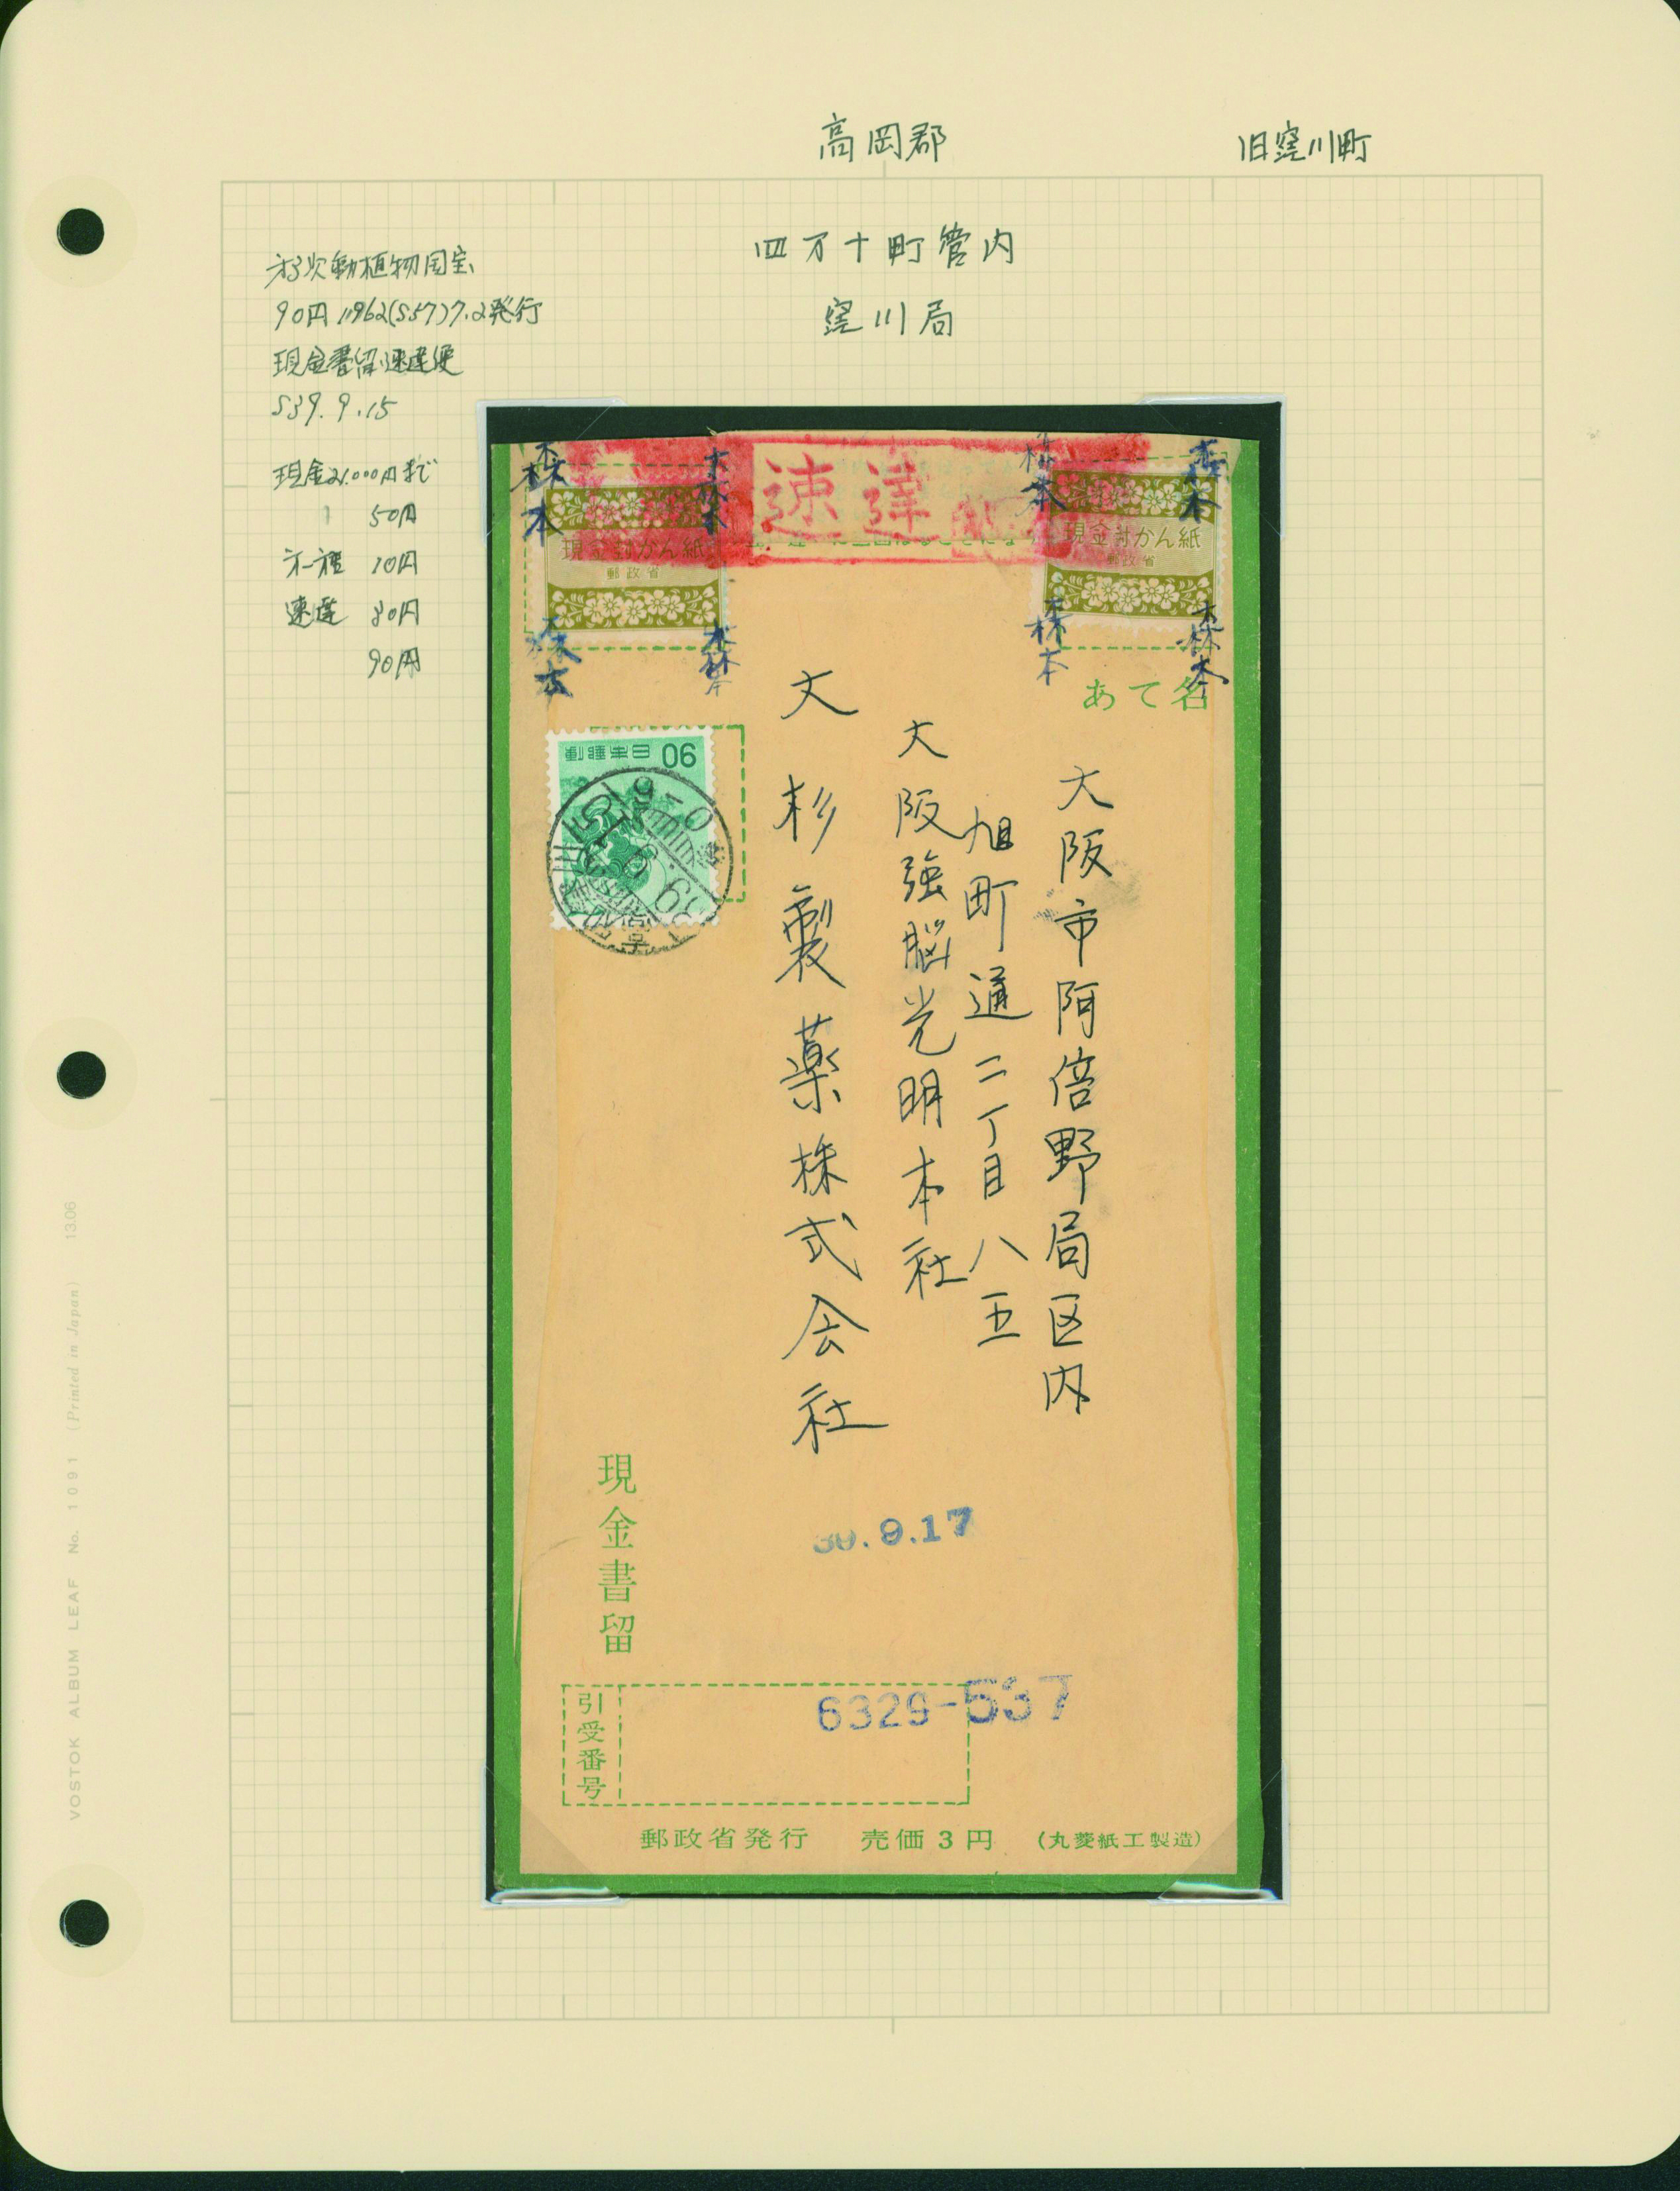 高岡郡
旧窪川町
四万十町管内
窪川局
才3次動植物国宝
90円 1962(S37)7.2発行
現金書留速達便
S39.9.15
現金2,000円まで
50円
才一種 10円
速達 30円
90円
速達
現金封かん紙
郵政省
現金封かん紙
郵政省
森本
森本
森本
森本
森本
森本
森本
森本
あて名
90 日本郵便
大阪市阿倍野局区内
旭町通二丁目八五
大阪強脳光明本社
大杉製薬株式会社
現金書留
39.9.17
引受番号
6329-537
郵政省発行 売価3円 (丸菱紙工製造)
VOSTOK ALBUM LEAF No. 1091 (Printed in Japan) 13.06